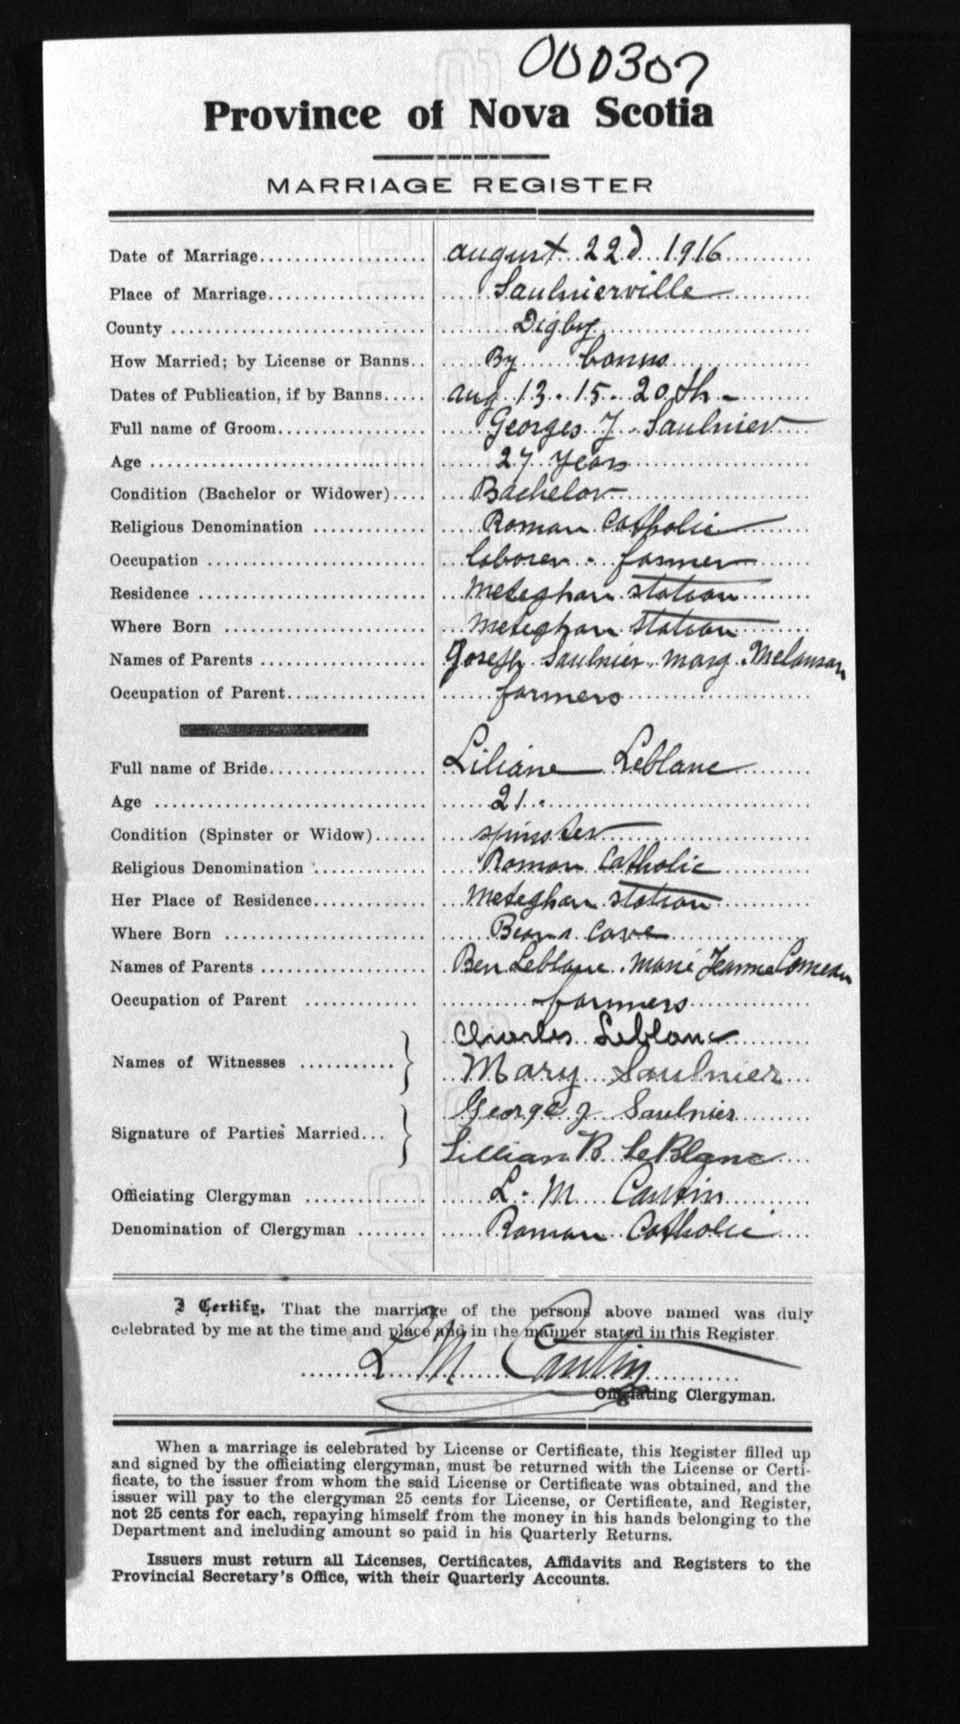 000307
Province of Nova Scotia
MARRIAGE REGISTER
Date of Marriage august 22d 1916
Place of Marriage Saulnierville
County Digby
How Married; by License or Banns By banns
Dates of Publication, if by Banns aug 13 - 15 - 20th -
Full name of Groom Georges J. Saulnier
Age 27 years
Condition (Bachelor or Widower) Bachelor
Religious Denomination Roman Catholic
Occupation laborer - farmer
Residence Meteghan station
Where Born Meteghan station
Names of Parents Joseph Saulnier. Marg. Melanson
Occupation of Parent farmers
Full name of Bride Liliane Leblanc
Age 21.
Condition (Spinster or Widow) spinster
Religious Denomination Roman Catholic
Her Place of Residence Meteghan station
Where Born Cove
Names of Parents Ben Leblanc. Marie Jeanne Comeau
Occupation of Parent farmers
Charles Leblanc
Names of Witnesses
Mary Saulnier
George J Saulnier
Signature of Parties Married
Lillian B. LeBlanc
Officiating Clergyman L. M.
Denomination of Clergyman Roman Catholic
I Certify, That the marriage of the persons above named was duly
celebrated by me at the time and place and in the manner stated in this Register.
L M
Officiating Clergyman.
When a marriage is celebrated by License or Certificate, this Register filled up
and signed by the officiating clergyman, must be returned with the License or Certi-
ficate, to the issuer from whom the said License or Certificate was obtained, and the
issuer will pay to the clergyman 25 cents for License, or Certificate, and Register,
not 25 cents for each, repaying himself from the money in his hands belonging to the
Department and including amount so paid in his Quarterly Returns.
Issuers must return all Licenses, Certificates, Affidavits and Registers to the
Provincial Secretary's Office, with their Quarterly Accounts.